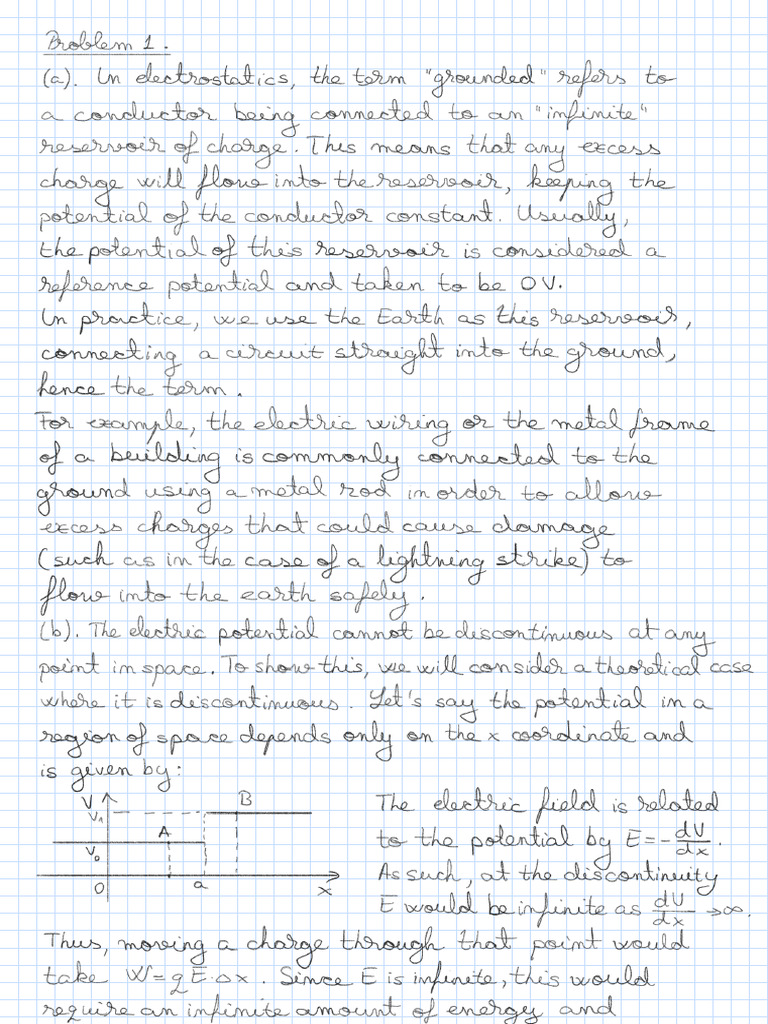 Problem 1.
(a). In electrostatics, the term "grounded" refers to
a conductor being connected to an "infinite"
reservoir of charge. This means that any excess
charge will flow into the reservoir, keeping the
potential of the conductor constant. Usually,
the potential of this reservoir is considered a
reference potential and taken to be 0V.
In practice, we use the Earth as this reservoir,
connecting a circuit straight into the ground,
hence the term.
For example, the electric wiring or the metal frame
of a building is commonly connected to the
ground using a metal rod in order to allow
excess charges that could cause damage
(such as in the case of a lightning strike) to
flow into the earth safely.
(b). The electric potential cannot be discontinuous at any
point in space. To show this, we will consider a theoretical case
where it is discontinuous. Let's say the potential in a
region of space depends only on the x coordinate and
is given by:
V
V₁
B
A
V₀
O
a
x
The electric field is related
to the potential by E = - dV/dx.
As such, at the discontinuity
E would be infinite as dV/dx → ∞.
Thus, moving a charge through that point would
take W = qE·Δx. Since E is infinite, this would
require an infinite amount of energy and